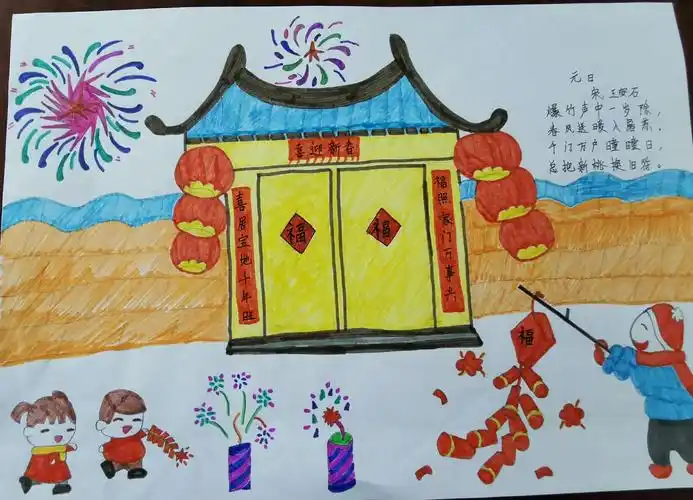 元日
宋 王安石
爆竹声中一岁除，
春风送暖入屠苏，
千门万户曈曈日，
总把新桃换旧符。
喜迎新春
喜居宝地千年旺
福照家门万事兴
福
福
福